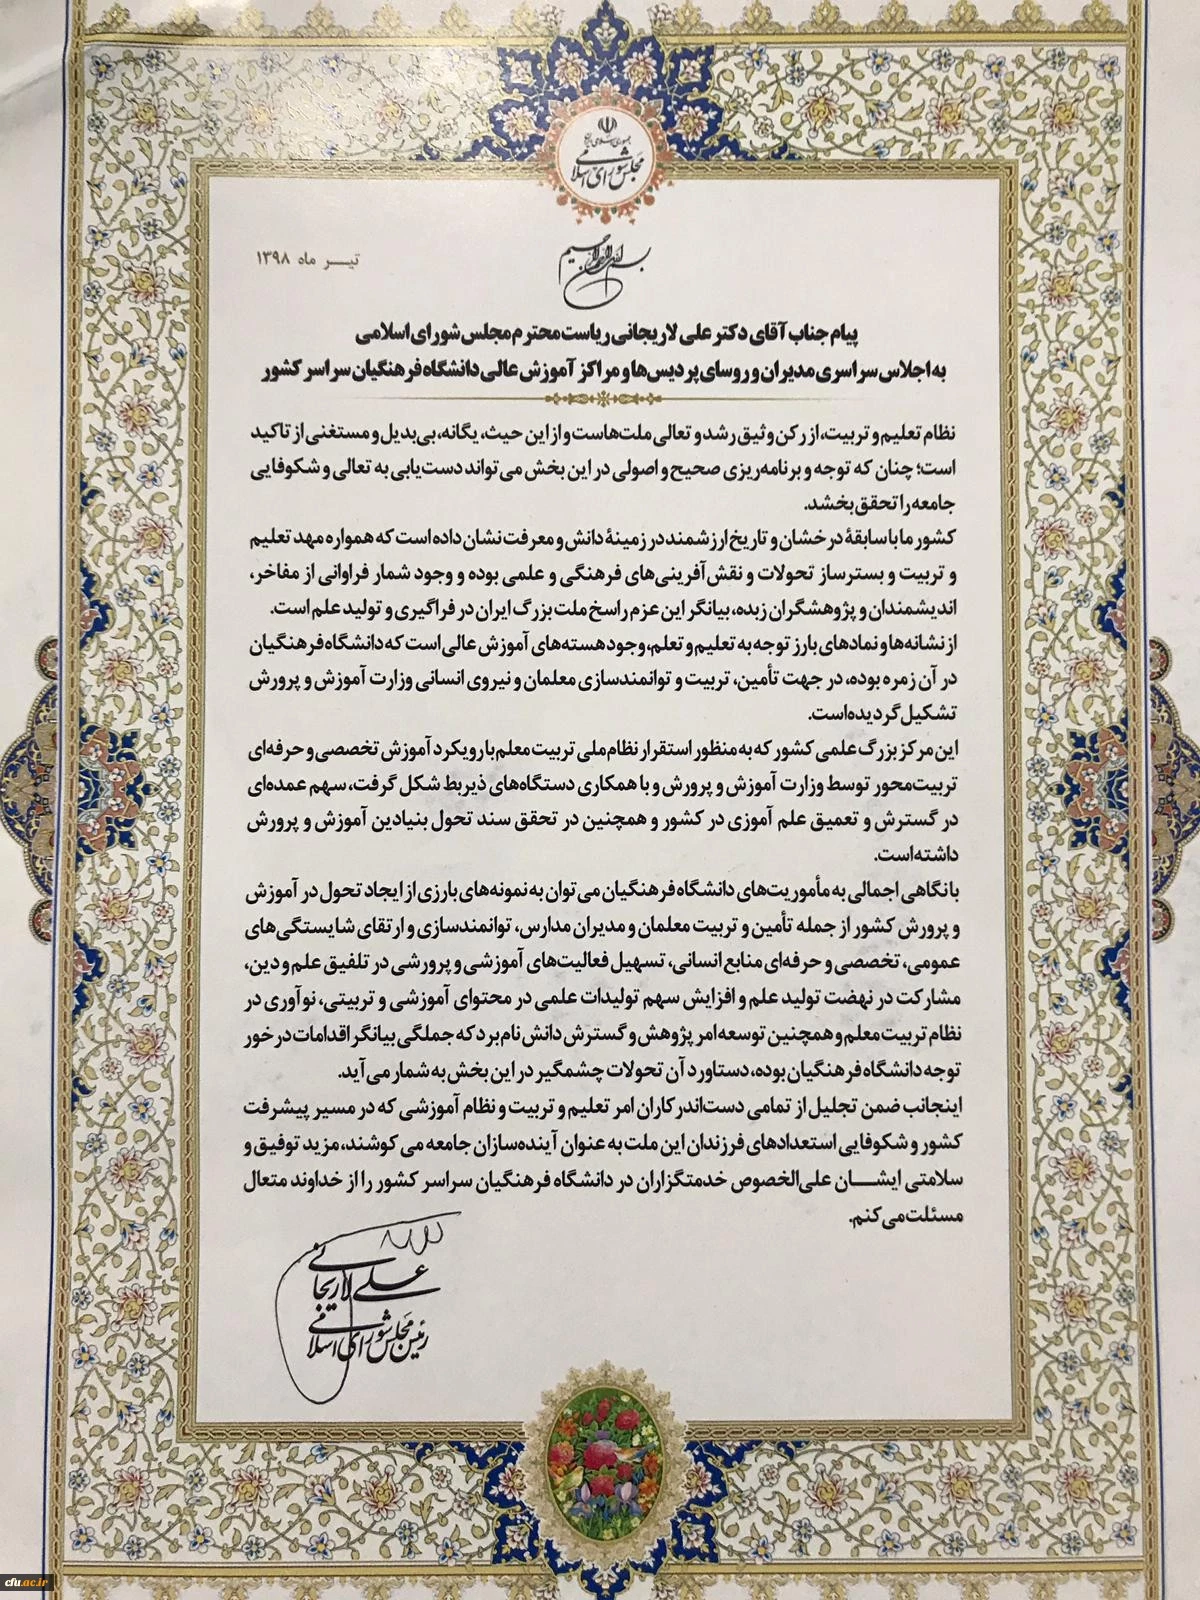 جمهوری اسلامی ایران
مجلس شورای اسلامی
بسم الله الرحمن الرحیم
تیـــر ماه ۱۳۹۸
پیام جناب آقای دکتر علی لاریجانی ریاست محترم مجلس شورای اسلامی
به اجلاس سراسری مدیران و روسای پردیس‌ها و مراکز آموزش عالی دانشگاه فرهنگیان سراسر کشور
نظام تعلیم و تربیت، از رکن وثیق رشد و تعالی ملت‌هاست و از این حیث، یگانه، بی‌بدیل و مستغنی از تاکید
است؛ چنان که توجه و برنامه‌ریزی صحیح و اصولی در این بخش می‌تواند دست‌یابی به تعالی و شکوفایی
جامعه را تحقق بخشد.
کشور ما با سابقهٔ درخشان و تاریخ ارزشمند در زمینهٔ دانش و معرفت نشان داده است که همواره مهد تعلیم
و تربیت و بسترساز تحولات و نقش‌آفرینی‌های فرهنگی و علمی بوده و وجود شمار فراوانی از مفاخر،
اندیشمندان و پژوهشگران زبده، بیانگر این عزم راسخ ملت بزرگ ایران در فراگیری و تولید علم است.
از نشانه‌ها و نمادهای بارز توجه به تعلیم و تعلم، وجود هسته‌های آموزش عالی است که دانشگاه فرهنگیان
در آن زمره بوده، در جهت تأمین، تربیت و توانمندسازی معلمان و نیروی انسانی وزارت آموزش و پرورش
تشکیل گردیده‌است.
این مرکز بزرگ علمی کشور که به منظور استقرار نظام ملی تربیت معلم با رویکرد آموزش تخصصی و حرفه‌ای
تربیت‌محور توسط وزارت آموزش و پرورش و با همکاری دستگاه‌های ذیربط شکل گرفت، سهم عمده‌ای
در گسترش و تعمیق علم آموزی در کشور و همچنین در تحقق سند تحول بنیادین آموزش و پرورش
داشته‌است.
با نگاهی اجمالی به مأموریت‌های دانشگاه فرهنگیان می توان به نمونه‌های بارزی از ایجاد تحول در آموزش
و پرورش کشور از جمله تأمین و تربیت معلمان و مدیران مدارس، توانمندسازی و ارتقای شایستگی‌های
عمومی، تخصصی و حرفه‌ای منابع انسانی، تسهیل فعالیت‌های آموزشی و پرورشی در تلفیق علم و دین،
مشارکت در نهضت تولید علم و افزایش سهم تولیدات علمی در محتوای آموزشی و تربیتی، نوآوری در
نظام تربیت معلم و همچنین توسعه امر پژوهش و گسترش دانش نام برد که جملگی بیانگر اقدامات در خور
توجه دانشگاه فرهنگیان بوده، دستاورد آن تحولات چشمگیر در این بخش به شمار می آید.
اینجانب ضمن تجلیل از تمامی دست‌اندرکاران امر تعلیم و تربیت و نظام آموزشی که در مسیر پیشرفت
کشور و شکوفایی استعدادهای فرزندان این ملت به عنوان آینده‌سازان جامعه می کوشند، مزید توفیق و
سلامتی ایشـــان علی‌الخصوص خدمتگزاران در دانشگاه فرهنگیان سراسر کشور را از خداوند متعال
مسئلت می کنم.
علی لاریجانی
رئیس مجلس شورای اسلامی
cfu.ac.ir